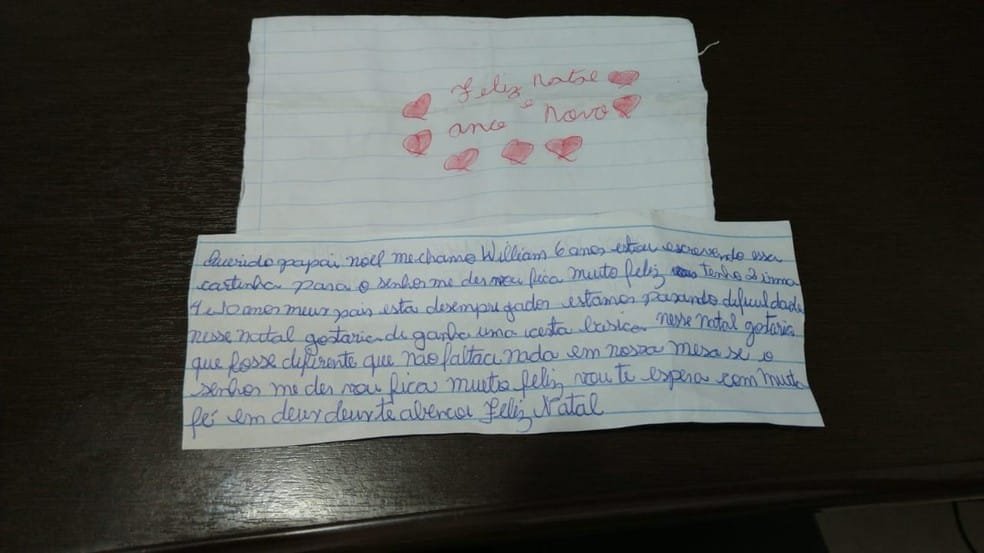 Feliz Natal
e
ano novo
Querido papai noel me chamo William 6 anos estou escrevendo essa
cartinha para o senhor me der vou fica muito feliz tenho 2 irma
4 e 10 anos meus pais esta desempregados estamos pasando dificuldade
nesse natal gostaria de ganha uma cesta basica nesse natal gostaria
que fosse diferente que não faltaci nada em nossa mesa se o
senhor me der vou fica muito feliz vou te espera com muita
fé em deus deus te abencoi Feliz Natal